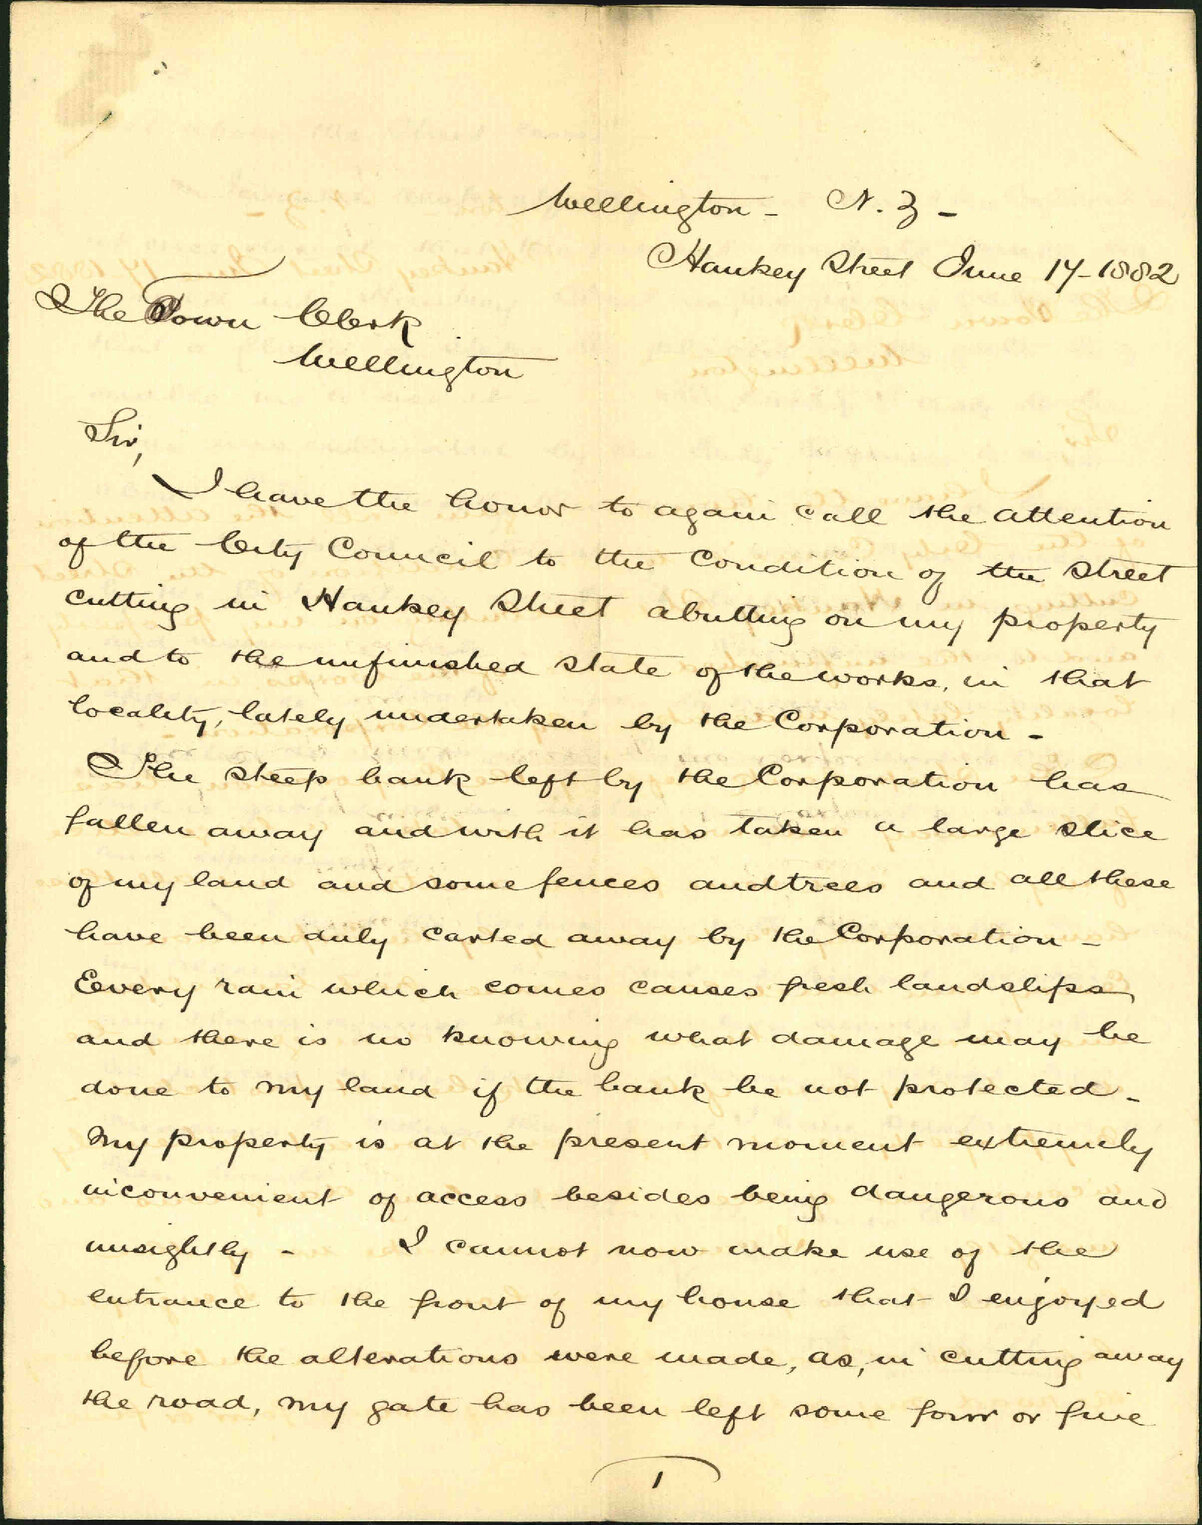 Wellington - N.Z -
Hankey Street June 17-1882
The Town Clerk
Wellington
Sir,
I have the honor to again call the attention
of the City Council to the condition of the street
cutting in Hankey Street abutting on my property
and to the unfinished state of the works, in that
locality, lately undertaken by the Corporation -
The steep bank left by the Corporation has
fallen away and with it has taken a large slice
of my land and some fences and trees and all these
have been duly carted away by the Corporation -
Every rain which comes causes fresh landslips
and there is no knowing what damage may be
done to my land if the bank be not protected -
My property is at the present moment extremely
inconvenient of access besides being dangerous and
unsightly - I cannot now make use of the
entrance to the front of my house that I enjoyed
before the alterations were made, as, in cutting away
the road, my gate has been left some four or five
1